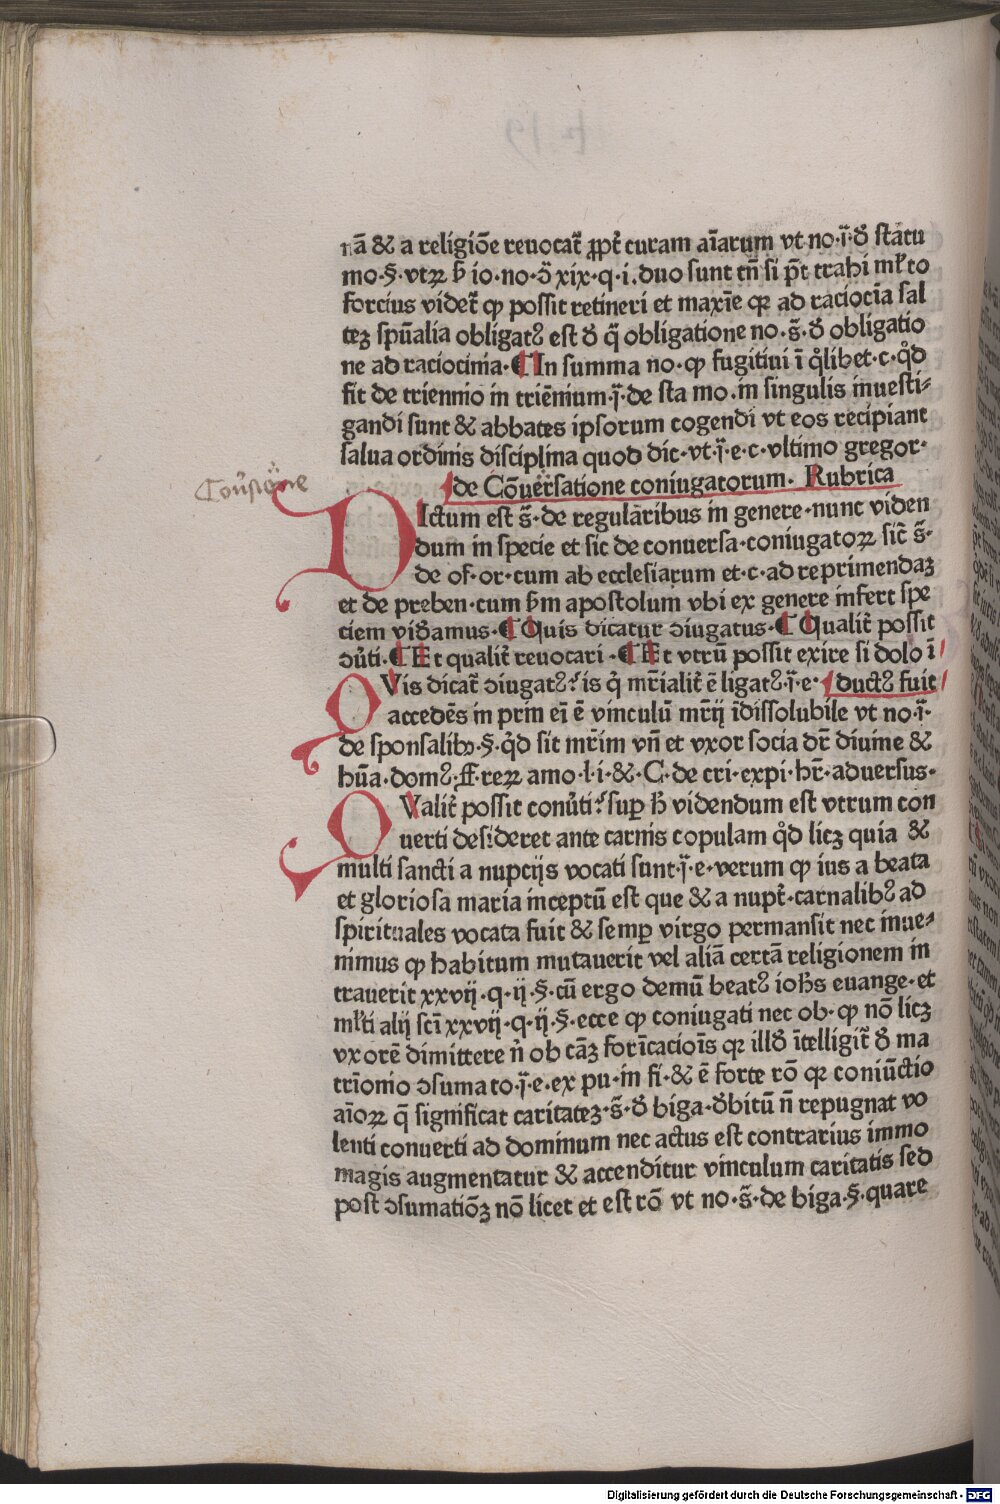 nā & a religiōe reuocat᷑ ꝓpt᷑ curam aīarum vt no·ī·ꝺ̄ statu
mo·§·vtꝝ b̄ io·no·ō xix·q·i·duo sunt tn̄ si p̄t trahi ml̄to
forcius videt᷑ ꝙ possit retineri et maxīe qꝛ ad raciocīa sal
teʒ spūalia obligatꝰ est ꝺ̄ q̄ obligatione no·s̄·ꝺ̄ obligatio
ne ad raciocinia·¶In summa no·ꝙ fugitiui ī qͦlibet·c·qͦd
fit de triennio in triēnium·ī·de sta mo·in singulis inuesti⸗
gandi sunt & abbates ipsorum cogendi vt eos recipiant
salua ordinis disciplina quod dic·vt·ī·e·c·vltimo gregor·
Cōuersatione
de Cōuersatione coniugatorum· Rubrica
DIctum est s̄·de regularibus in genere·nunc viden
dum in specie et sic de conuersa·coniugatoꝝ sic̄ s̄·
de of·or·cum ab ecclesiarum et·c·ad reprimendaʒ
et de preben·cum b̄m apostolum vbi ex genere infert spe
ciem viꝺ̄amus·¶Quis dicatur ↄiugatus·¶Qualit᷑ possit
ↄu᷑ti·¶Et qualit᷑ reuocari·¶Et vtrū possit exire si dolo ī
QVis dicat᷑ ↄiugatꝰ? is qͥ mr̄ialit᷑ ē ligatꝰ·ī·e· ductꝰ fuit
accedēs in prin eī ē vinculū mr̄ij īdissolubile vt no·ī·
de sponsalibꝫ·§·qͦd sit mr̄im vn̄ et vxor socia dr̄ diuine &
hūa·domꝰ·ff·reꝝ amo·l·i·&·C·de cri·expi·hr̄·aduersus·
QValit᷑ possit conu᷑ti? suꝑ h̄ videndum est vtrum con
uerti desideret ante carnis copulam qͦd licʒ quia &
multi sancti a nupcijs vocati sunt·ī·e·verum ꝙ ius a beata
et gloriosa maria inceptū est que & a nupt᷑·carnalibꝰ ad
spirituales vocata fuit & semꝑ virgo permansit nec inue⸗
nimus ꝙ habitum mutauerit vel aliā certā religionem in
trauerit xxvij·q·ij·§·cū ergo demū beatꝰ ioh̄s euange·et
ml̄ti alij scī xxvij·q·ij·§·ecce ꝙ coniugati nec ob·ꝙ nō licʒ
vxorē dimittere n̄ ob cāʒ forīcacioīs qꝛ illꝺ̄ ītelligit᷑ ꝺ̄ ma
trīonio ↄsumato·ī·e·ex pu·in fi·& ē forte rō qꝛ coniūctio
aīoꝝ q̄ significat caritateʒ·s̄·ꝺ̄ biga·ꝺ̄bitū n̄ repugnat vo
lenti conuerti ad dominum nec actus est contrarius immo
magis augmentatur & accenditur vinculum caritatis sed
post ↄsumatiōʒ nō licet et est rō vt no·s̄·de biga·§·quare
Digitalisierung gefördert durch die Deutsche Forschungsgemeinschaft - DFG